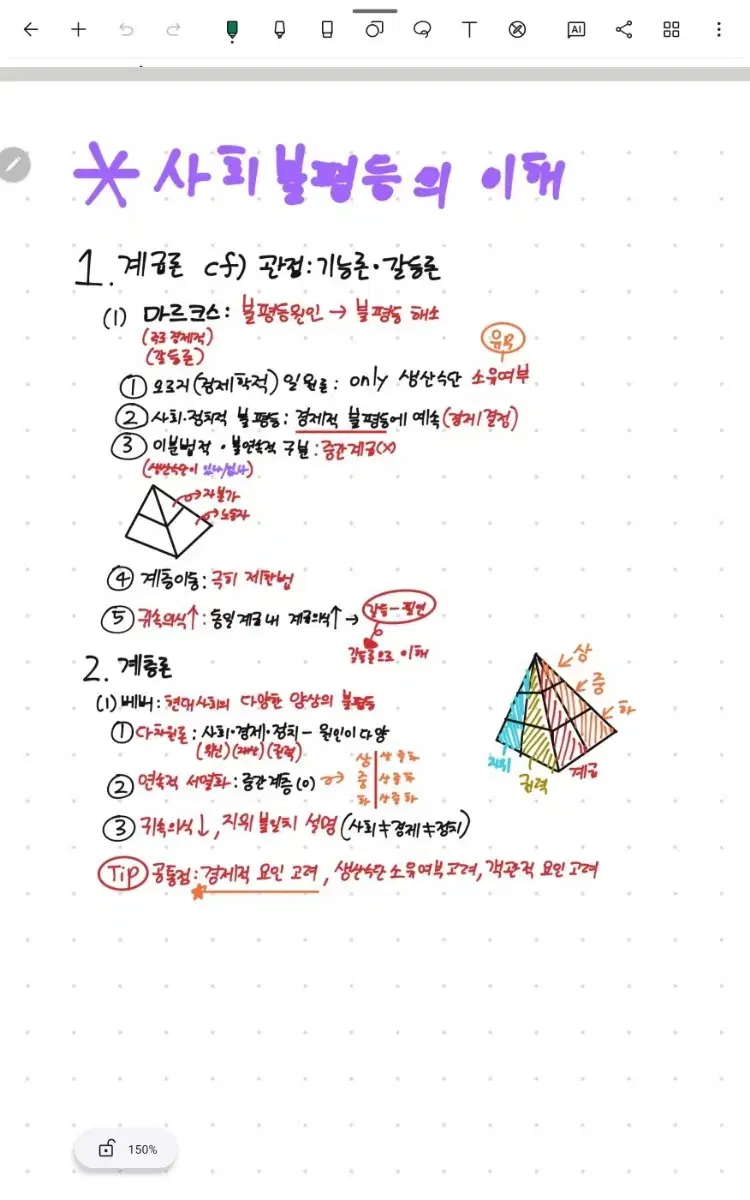 AI
* 사회 불평등의 이해
1. 계급론 cf) 관점: 기능론·갈등론
(1) 마르크스: 불평등원인 → 불평등 해소
(갈등론)
유무
① 오로지 (경제학적) 일원론: only 생산수단 소유여부
② 사회·정치적 불평등: 경제적 불평등에 예속 (경제결정)
③ 이분법적·불연속적 구분: 중간계급(x)
(생산수단이 있냐/없냐)
자본가
노동자
④ 계층이동: 극히 제한법
⑤ 귀속의식↑: 동일계급 내 계급의식↑ → 갈등-필연
갈등론으로 이해
2. 계층론
(1) 베버: 현대사회의 다양한 양상의 불평등
① 다차원론: 사회·경제·정치 - 원인이 다양
(위신) (재산) (권력)
② 연속적 서열화: 중간계층(o) →
상 상중하
중 상중하
하 상중하
상
중
하
지위
권력
계급
③ 귀속의식↓, 지위 불일치 설명 (사회≠경제≠정치)
Tip 공통점: 경제적 요인 고려, 생산수단 소유여부 고려, 객관적 요인 고려
150%